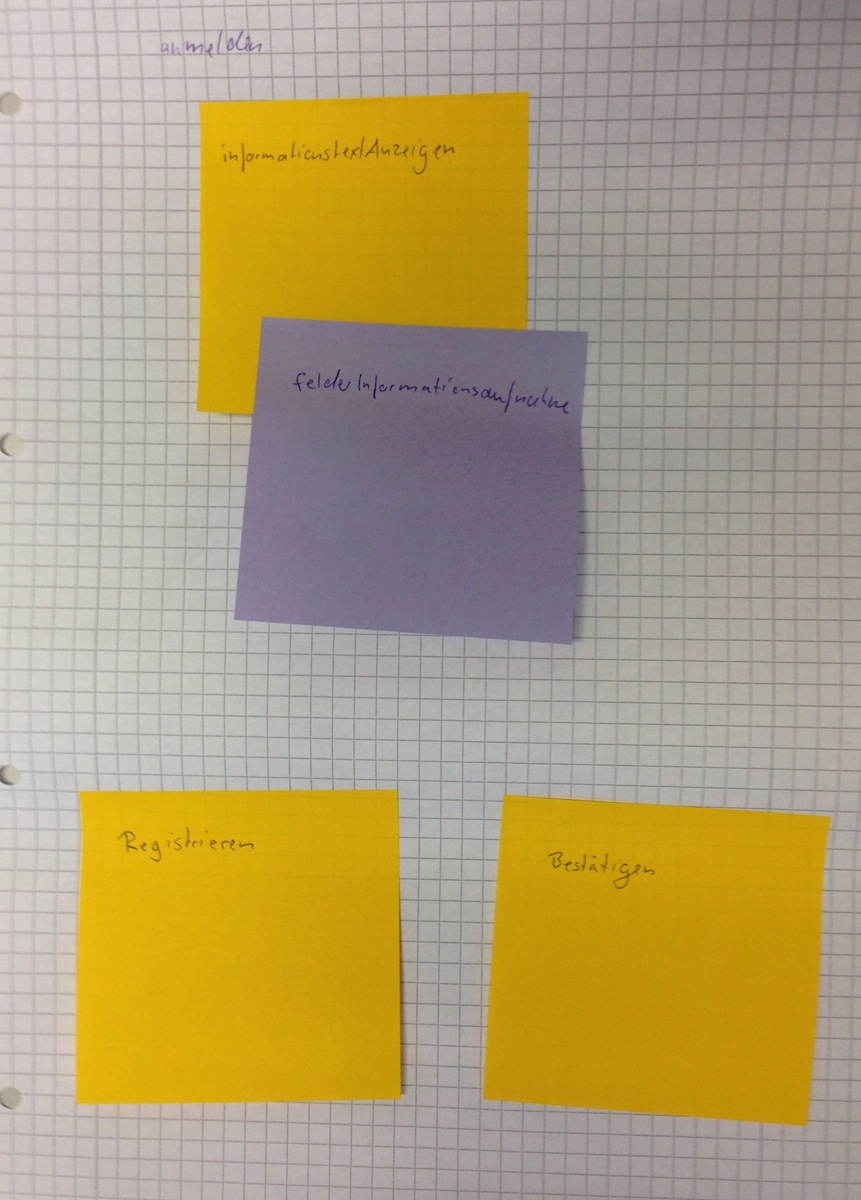 anmelden
informationstextAnzeigen
felderInformationsaufnahme
Registrieren
Bestätigen